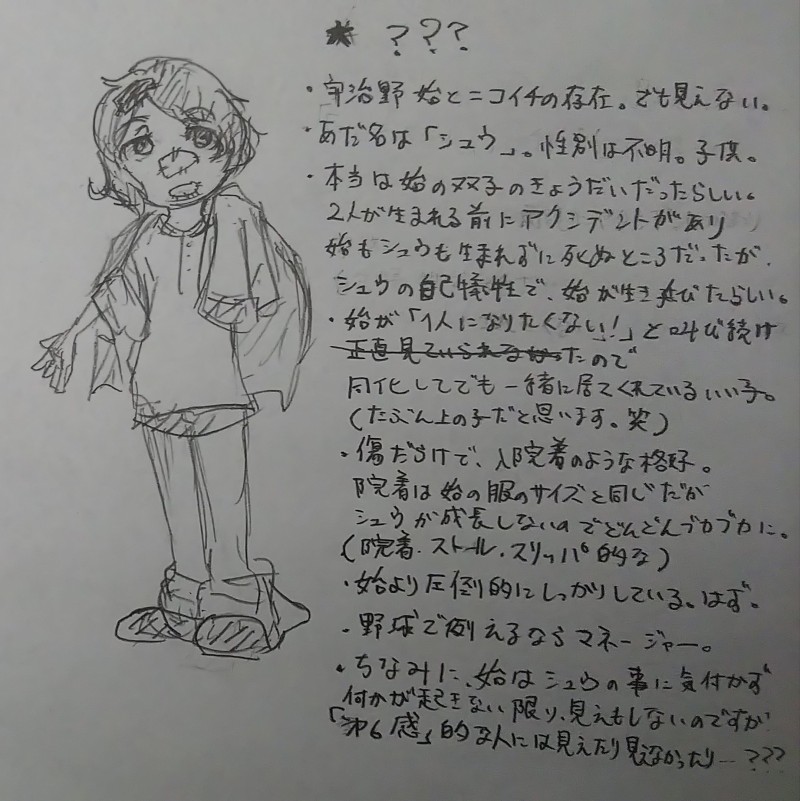 ★ ???
・宇治野 始とニコイチの存在。でも見えない。
・あだ名は「シュウ」。性別は不明。子供。
・本当は始の双子のきょうだいだったらしい。
2人が生まれる前にアクシデントがあり
始もシュウも生まれずに死ぬところだったが、
シュウの自己犠牲で、始が生き延びたらしい。
・始が「1人になりたくない!」と叫び続け
正直見ていられなかったので
同化してでも一緒に居てくれているいい子。
(たぶん上の子だと思います。笑)
・傷だらけで、入院着のような格好。
院着は始の服のサイズと同じだが
シュウが成長しないのでどんどんブカブカに。
(院着・ストール・スリッパ的な)
・始より圧倒的にしっかりしている。はず。
・野球で例えるならマネージャー。
・ちなみに、始はシュウの事に気付かず
何かが起きない限り、見えもしないのですが
「第6感」的な人には見えたり見えなかったり…???